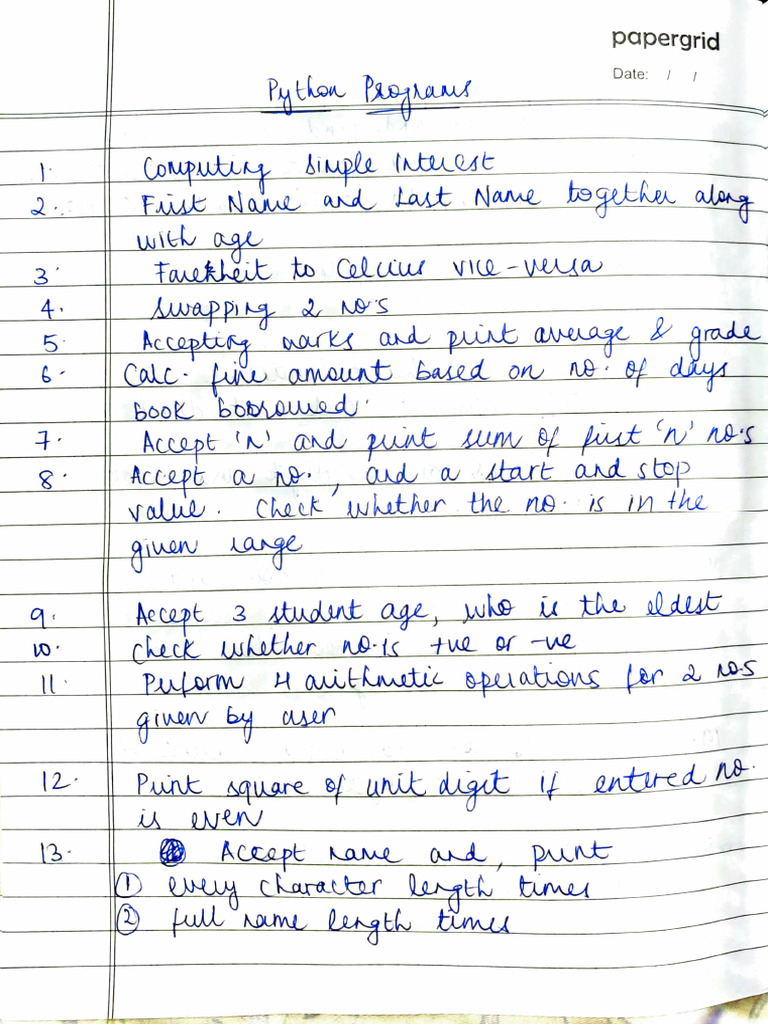 papergrid
Date: / /
Python Programs
1. Computing simple interest
2. First Name and Last Name together along
with age
3. Farekheit to Celcius vice-versa
4. Swapping 2 no.s
5. Accepting marks and print average & grade
6. Calc. fine amount based on no. of days
book borrowed.
7. Accept 'n' and print sum of first 'n' no.s
8. Accept a no., and a start and stop
value. Check whether the no. is in the
given range
9. Accept 3 student age, who is the eldest
10. Check whether no. is +ve or -ve
11. Perform 4 arithmetic operations for 2 no.s
given by user
12. Print square of unit digit if entered no.
is even
13. Accept name and, print
① every character length times
② full name length times